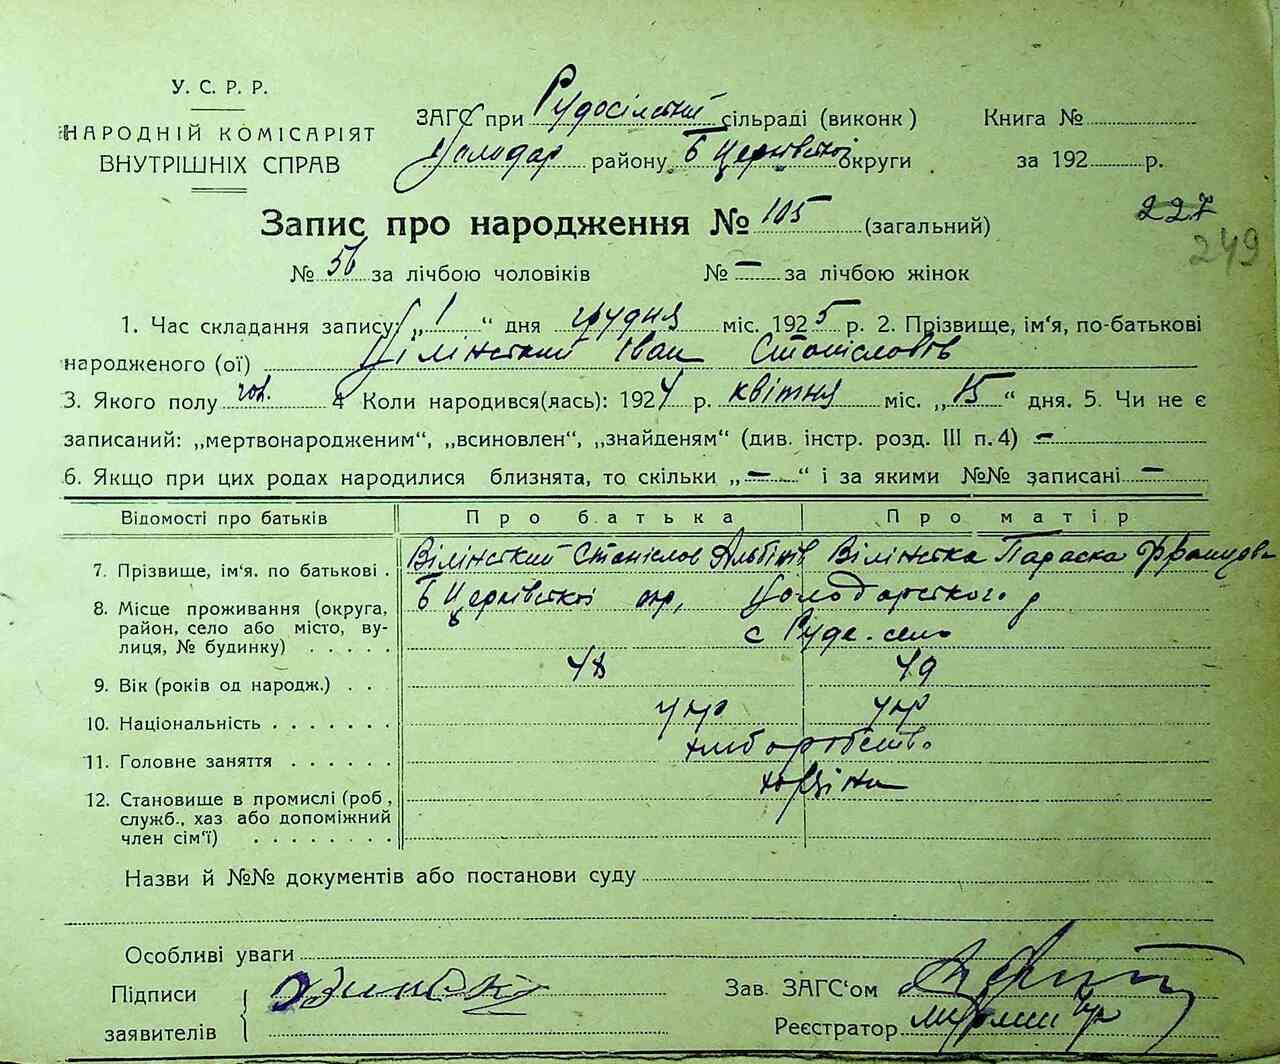 У. С. Р. Р.
НАРОДНІЙ КОМІСАРІЯТ
ВНУТРІШНІХ СПРАВ
ЗАГС при Рудосільській сільраді (виконк )
Володар району Б Церківської округи
Книга №
за 192 р.
Запис про народження № 105 (загальний)
227
249
№ 56 за лічбою чоловіків № — за лічбою жінок
1. Час складання запису: „ 1 “ дня грудня міс. 1925 р. 2. Прізвище, ім'я, по-батькові
народженого (ої) Вілінський Іван Станіславів
3. Якого полу чол. 4 Коли народився(лась): 1924 р. квітня міс. „ 15 “ дня. 5. Чи не є
записаний: „мертвонародженим“, „всиновлен“, „знайденям“ (див. інстр. розд. III п. 4) —
6. Якщо при цих родах народилися близнята, то скільки „ — “ і за якими №№ записані —
Відомості про батьків Про батька Про матір
7. Прізвище, ім'я. по батькові . Вілінський Станіслов Альбінів Вілінська Параска
8. Місце проживання (округа, район, село або місто, вулиця, № будинку) Б Церківської окр, Володарського р
с Руде село
9. Вік (років од народж.) . . 48 49
10. Національність укр укр
11. Головне заняття хліборобство
12. Становище в промислі (роб, служб., хаз або допоміжний член сім'ї) хазяїни
Назви й №№ документів або постанови суду
Особливі уваги
Підписи
заявителів
Зав. ЗАГС'ом
Реєстратор